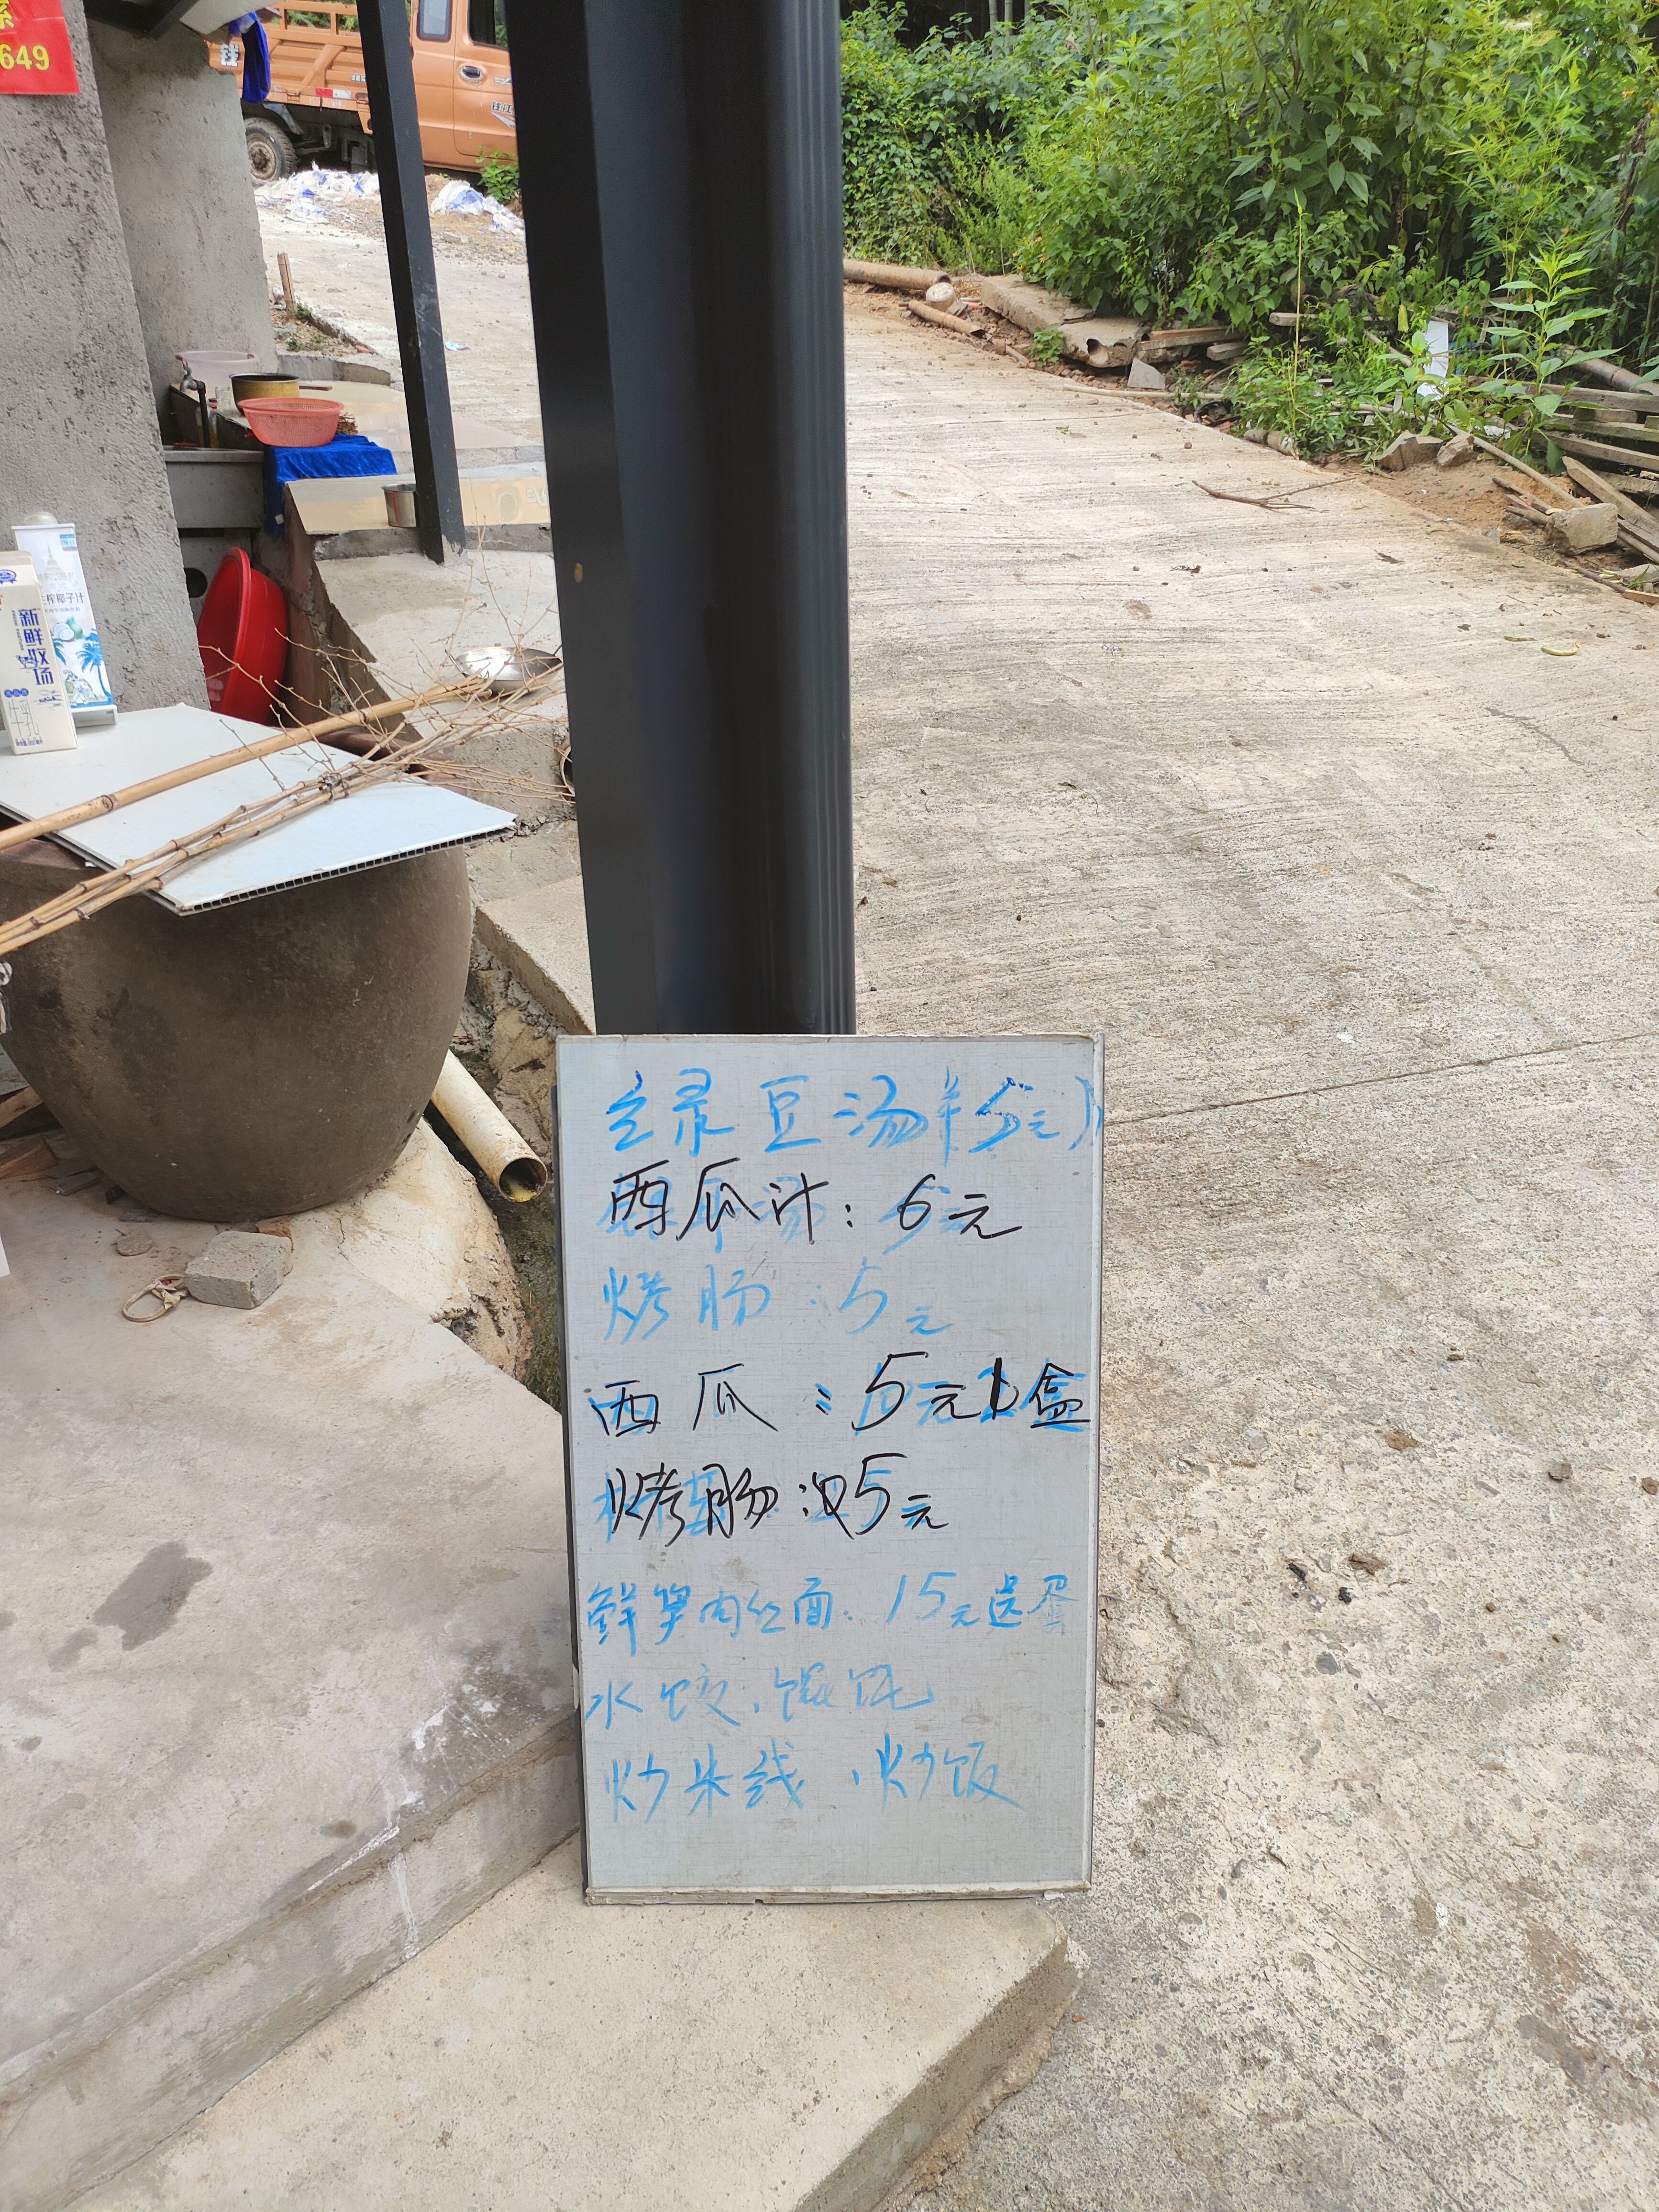 649
钱江
生榨椰子汁
新鲜
绿豆汤（5元）
西瓜汁：6元
烤肠：5元
西瓜：5元1盒
烤肠：5元
鲜笋肉丝面：15元送蛋
水饺、馄饨
炒米线、炒饭